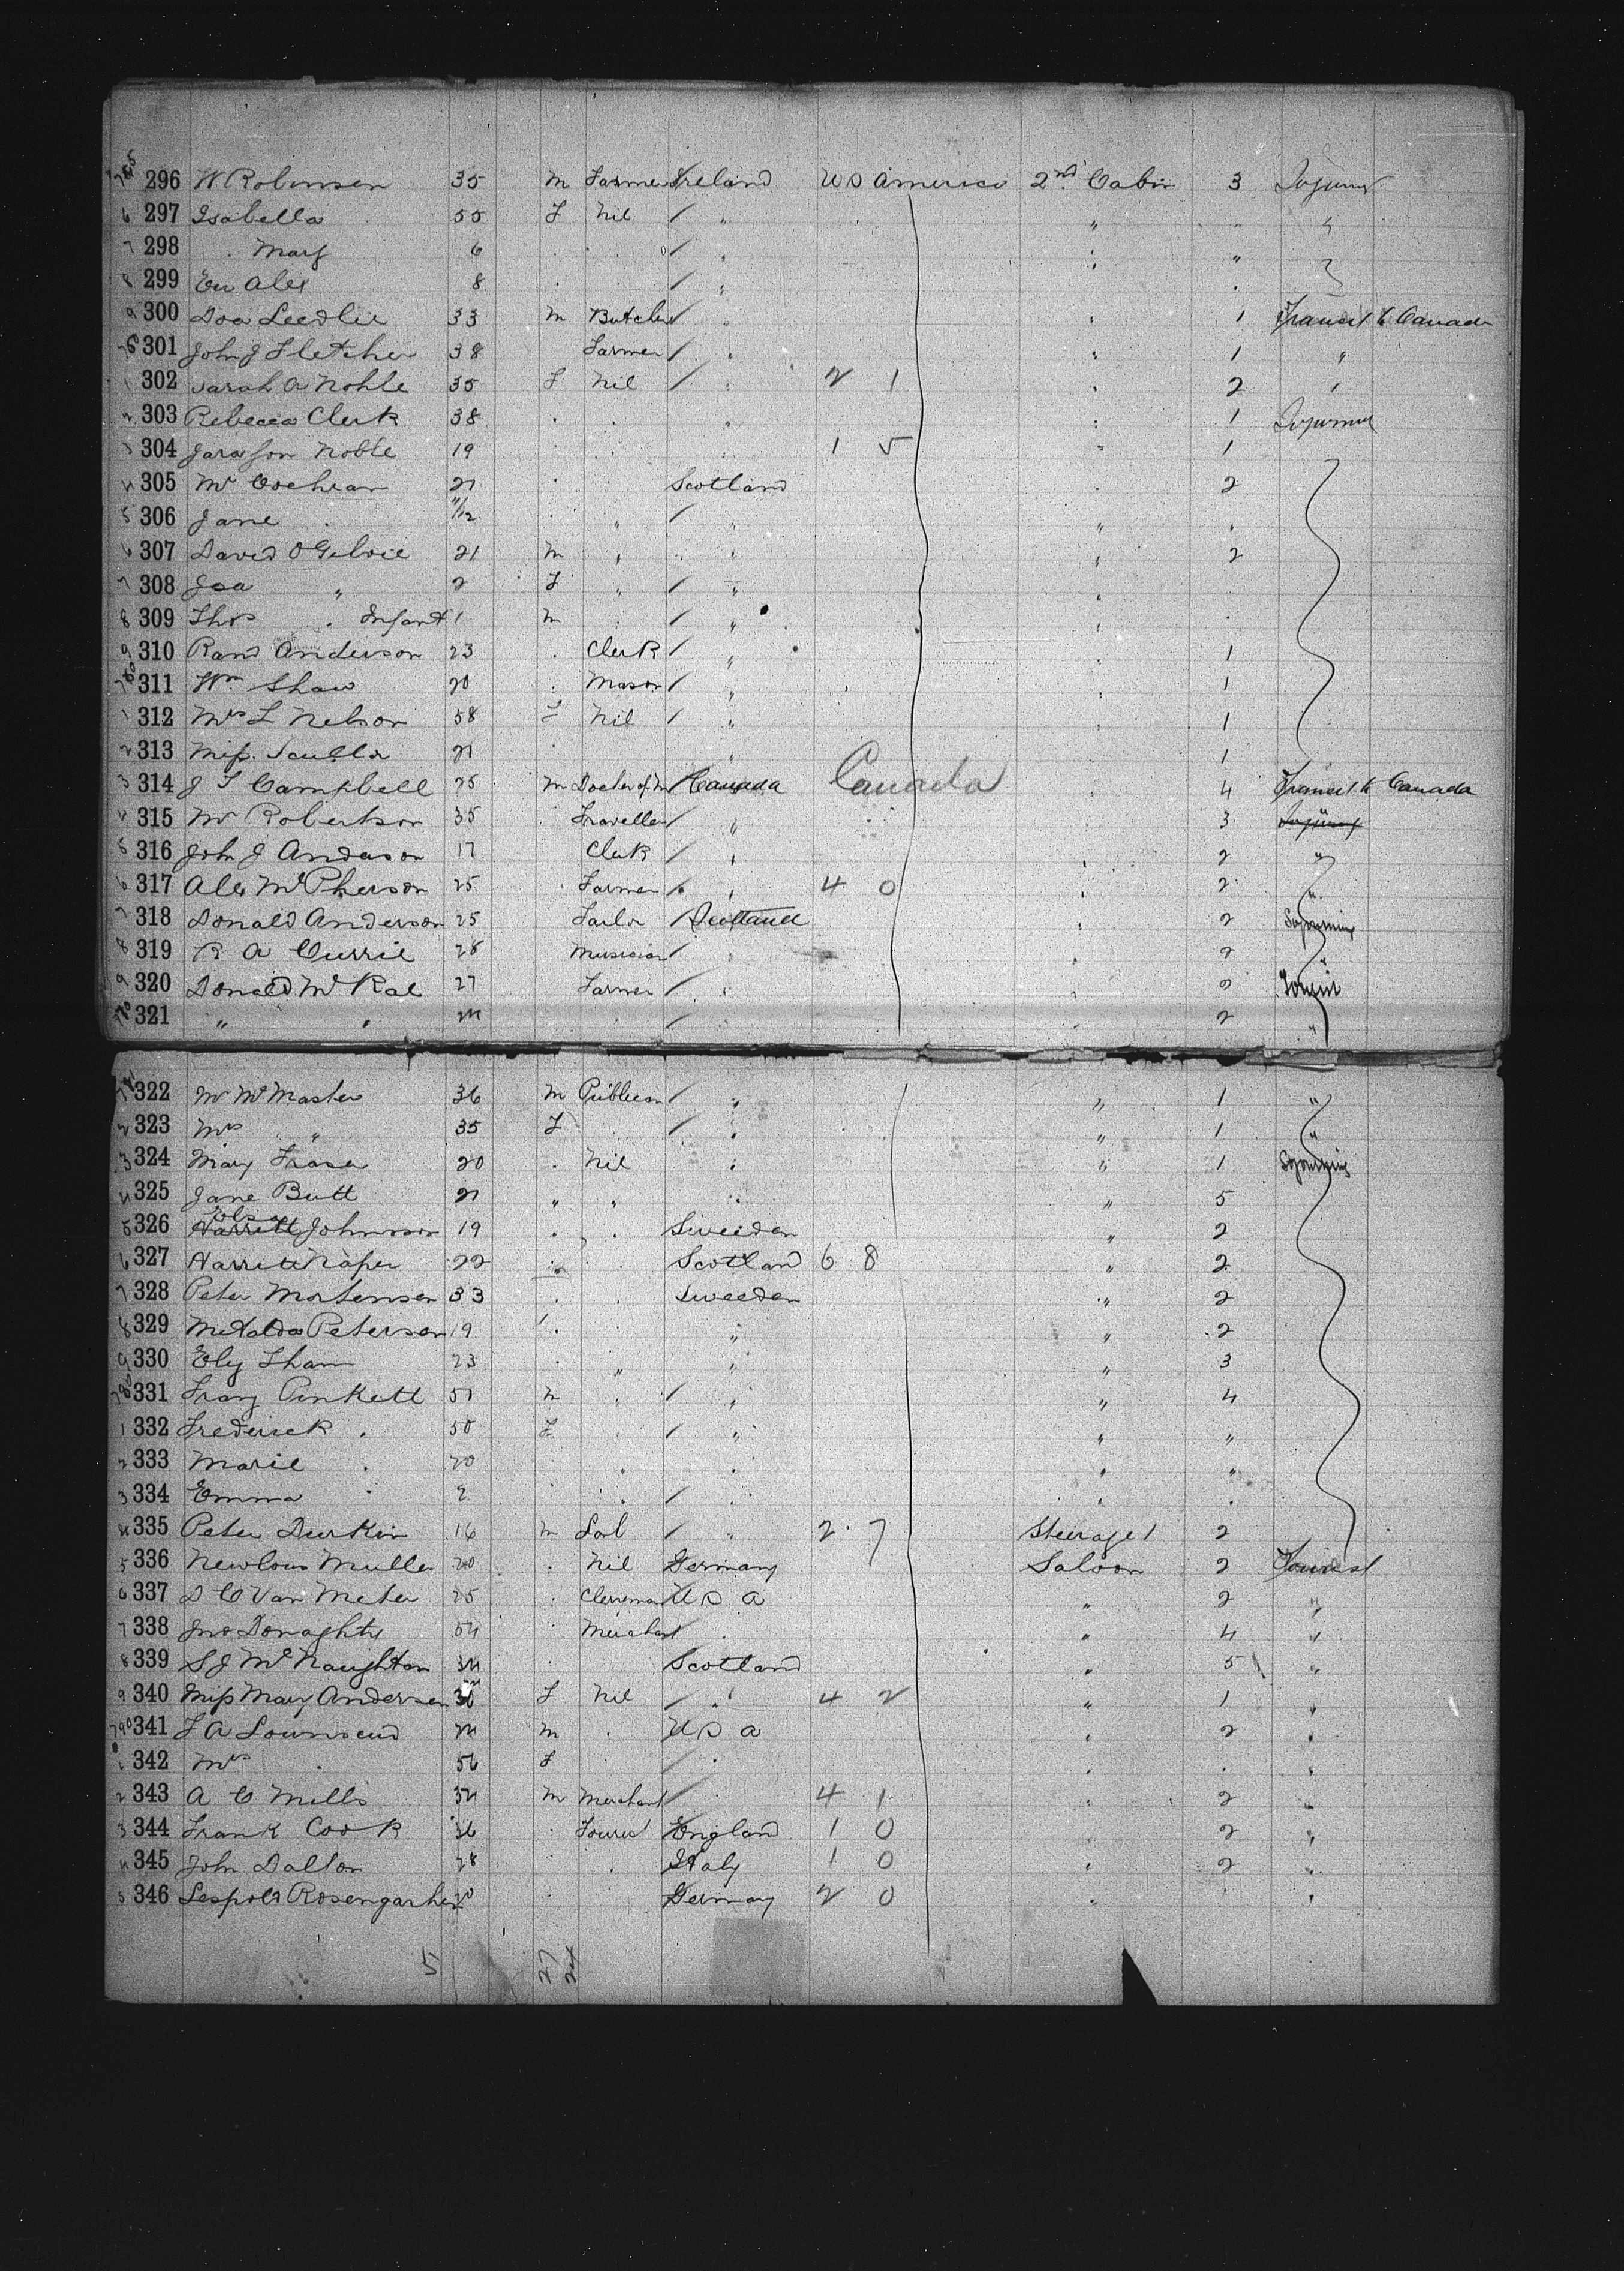 296 W Robinson 35 m Farmer Ireland U S America 2nd Cabin 3
297 Isabella 55 F Nil / " " "
298 Mary 6 /
299 Alex 8 /
300 33 m Butcher / 1 Transit to Canada
301 John J Fletcher 38 Farmer / 1 "
302 Sarah A Noble 35 F Nil / 2 1 2
303 Rebecca Clerk 38 1
304 Noble 19 1 5 1
305 Mrs Cochran 21 Scotland 2
306 Jane 11/12 " / " "
307 David OGilvie 21 m " 2
308 " 2 F " / " "
309 Thos Infant 1 m / "
310 Rand Anderson 23 Clerk / " 1
311 Wm Shaw 20 Mason / " 1
312 Mrs L Nelson 58 F Nil / " 1
313 Miss 21 1
314 J T Campbell 25 m Doctor of M / Canada Canada 4 Transit to Canada
315 Mr Robertson 35 Traveller / " 3
316 John J Anderson 17 Clerk / " 2 "
317 Alex McPherson 25 Farmer " 4 0 2 "
318 Donald Anderson 25 Tailor / Scotland 2 Sojourning
319 R A Currie 28 Musician / 2 "
320 Donald McRae 27 Farmer / 2 Tourist
321 " " 24 / 2 "
322 Mr McMaster 36 m Publican / " " 1 "
323 Mrs " 35 F / " 1 "
324 Mary Fraser 20 Nil " 1 Sojourning
325 Jane Butt 21 " " " 5
326 Johnson 19 Sweeden " 2
327 Harriett Roper 22 Scotland 6 8 " 2
328 Peter Mortensen 33 Sweeden " 2
329 Peterson 19 " " 2
330 Ely Tham 23 " " " 3
331 Franz Pinkett 51 m / " " 4
332 Frederick 50 F / " " "
333 Marie 20 " "
334 Emma 2 /
335 Peter Durkin 16 m Lab / " 2 7 Steerage 1 2
336 Muller 20 Nil Germany Saloon 2 Tourist
337 D C Van Meter 25 U S A " 2 "
338 Jno Donaghty 54 Merchant / " 4 "
339 S J McNaughton 34 Scotland " 5 "
340 Miss Mary Anderson 30 F Nil / " 4 2 " 1 "
341 F A Townsend m U S A 2 "
342 Mrs 56 F / "
343 A C Mills 34 m Merchant / 4 1 2 "
344 Frank Cook 36 Tourist England 1 0 2 "
345 John Dalton 28 Italy 1 0 2 "
346 Leopold Rosengarten 20 Germany 2 0 " "
5 27 24